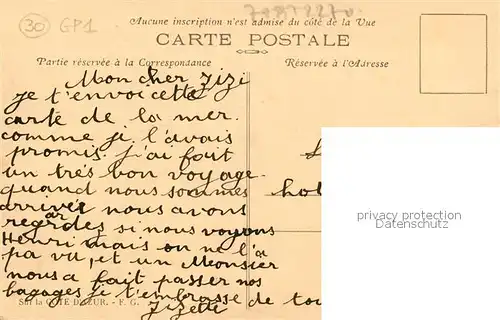 30 GP1
Aucune inscription n'est admise du côté de la Vue
CARTE POSTALE
Partie réservée à la Correspondance
Réservée à l'Adresse
Mon cher Zizi
je t'envoi cette
carte de la mer.
comme je l'avais
promis. j'ai fait
un très bon voyage.
quand nous sommes
arrivée nous avons
regardes si nous voyons
Henri mais on ne l'a
pa vu, et un Monsier
nous a fait passer nos
bagages je t'embrasse de tou
Zizette
Sur la COTE D'AZUR. - F. G.
hot
privacy protection
Datenschutz